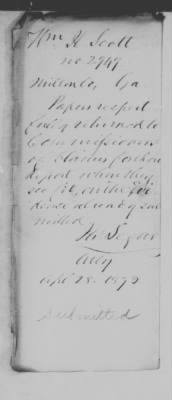 Wm H. Scott
no 2949
Milton Co, Ga
Papers respect
fully returned to
Commissioners
of Claims for their
report when they
see fit, on the Evi
dence already sub
mitted
Atty
Sept 28. 1872
Submitted